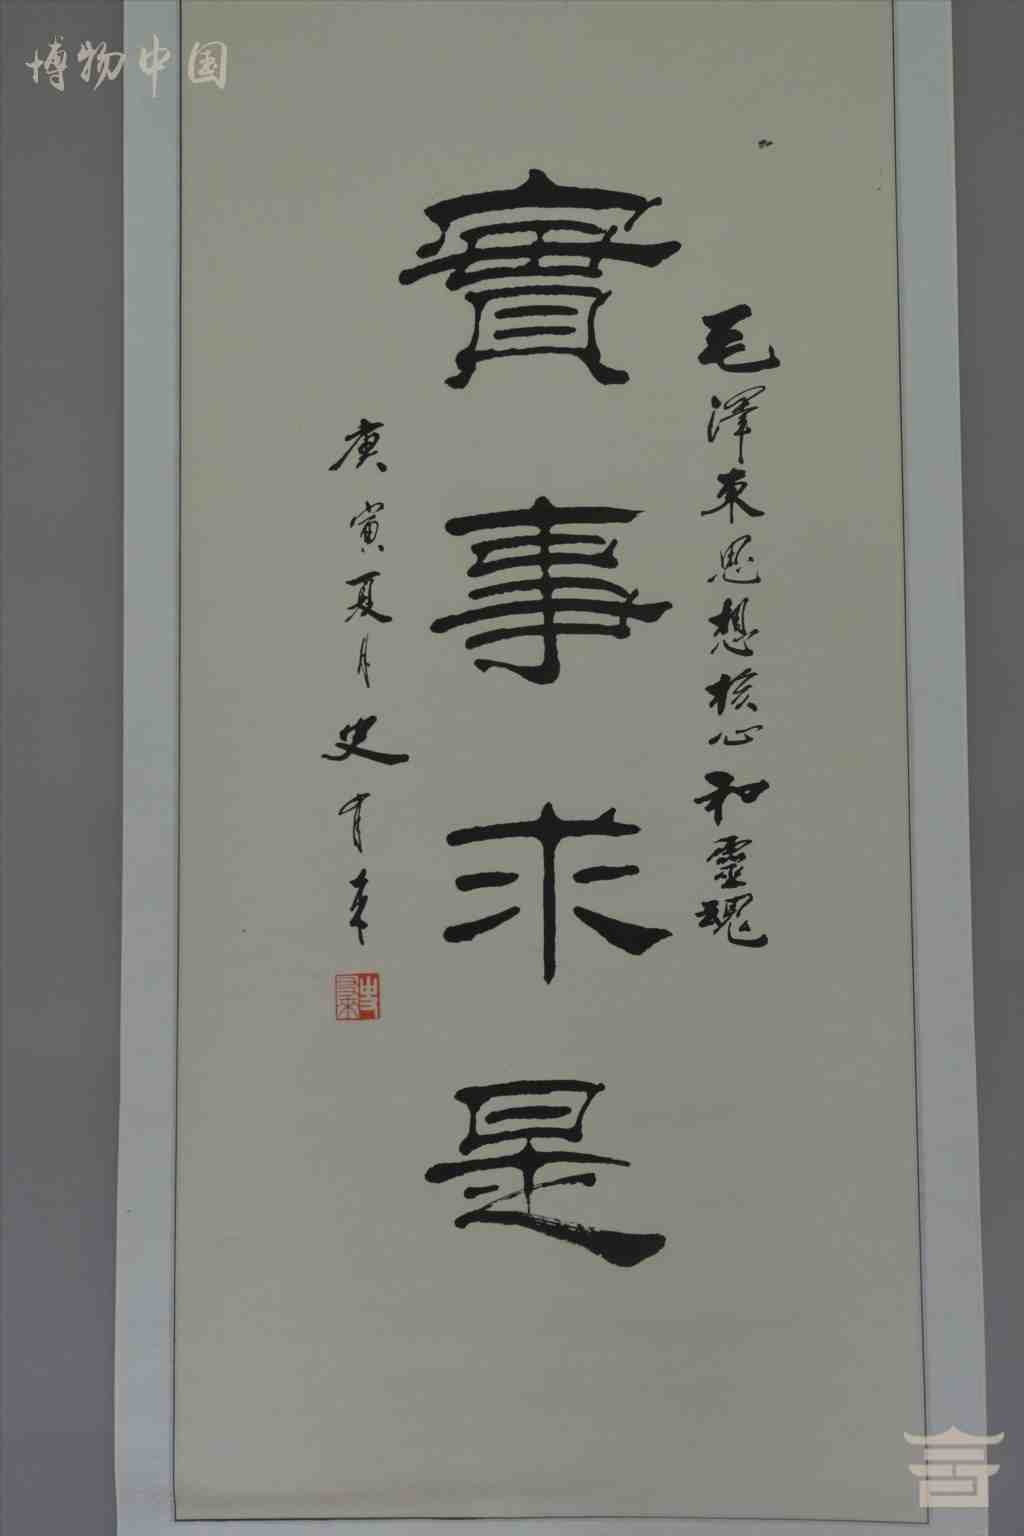 博物中国
毛澤東思想核心和靈魂
實事求是
庚寅夏月史有来